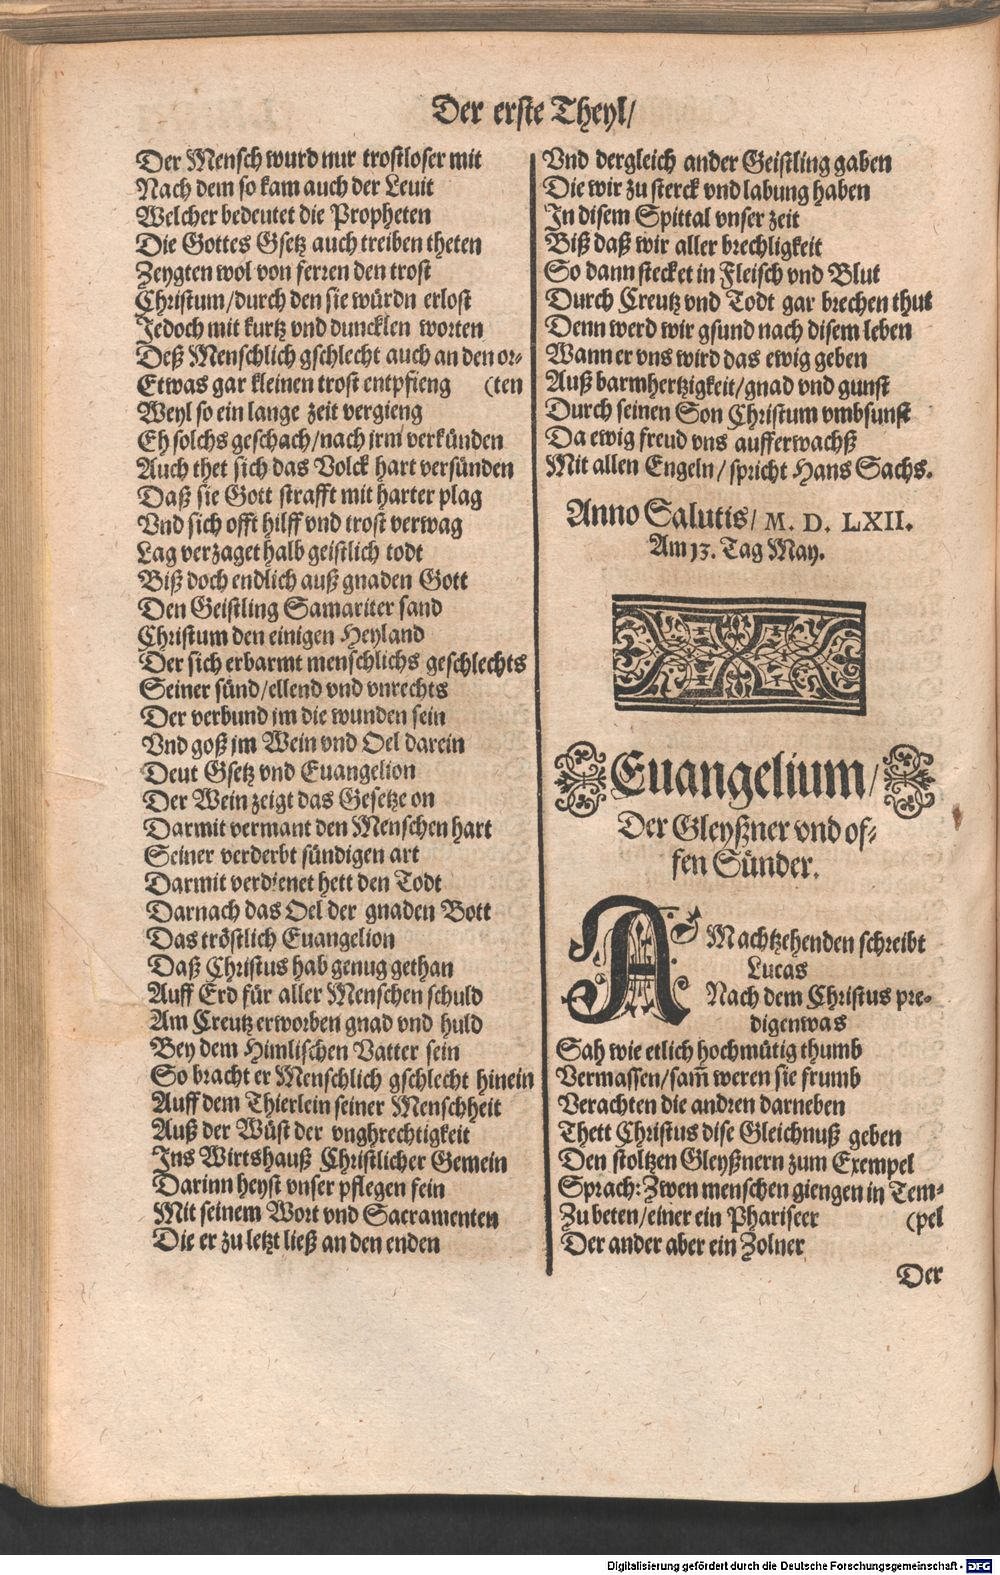 Der erste Theyl/
Der Mensch wurd nur trostloser mit
Nach dem so kam auch der Leuit
Welcher bedeutet die Propheten
Die Gottes Gsetz auch treiben theten
Zeygten wol von ferren den trost
Christum/durch den sie würdn erlost
Jedoch mit kurtz vnd duncklen worten
Deß Menschlich gschlecht auch an den or-
Etwas gar kleinen trost entpfieng (ten
Weyl so ein lange zeit vergieng
Eh solchs geschach/nach irm verkünden
Auch thet sich das Volck hart versünden
Daß sie Gott strafft mit harter plag
Vnd sich offt hilff vnd trost verwag
Lag verzaget halb geistlich todt
Biß doch endlich auß gnaden Gott
Den Geistling Samariter sand
Christum den einigen Heyland
Der sich erbarmt menschlichs geschlechts
Seiner sünd/ellend vnd vnrechts
Der verbund jm die wunden sein
Vnd goß jm Wein vnd Oel darein
Deut Gsetz vnd Euangelion
Der Wein zeigt das Gesetze on
Darmit vermant den Menschen hart
Seiner verderbt sündigen art
Darmit verdienet hett den Todt
Darnach das Oel der gnaden Bott
Das tröstlich Euangelion
Daß Christus hab genug gethan
Auff Erd für aller Menschen schuld
Am Creutz erworben gnad vnd huld
Bey dem Himlischen Vatter sein
So bracht er Menschlich gschlecht hinein
Auff dem Thierlein seiner Menschheit
Auß der Wüst der vnghrechtigkeit
Ins Wirtshauß Christlicher Gemein
Darinn heyst vnser pflegen fein
Mit seinem Wort vnd Sacramenten
Die er zu letzt ließ an den enden
Vnd dergleich ander Geistling gaben
Die wir zu sterck vnd labung haben
In disem Spittal vnser zeit
Biß daß wir aller brechligkeit
So dann stecket in Fleisch vnd Blut
Durch Creutz vnd Todt gar brechen thut
Denn werd wir gsund nach disem leben
Wann er vns wird das ewig geben
Auß barmhertzigkeit/gnad vnd gunst
Durch seinen Son Christum vmbsunst
Da ewig freud vns aufferwachß
Mit allen Engeln/spricht Hans Sachs.
Anno Salutis/ M. D. LXII.
Am 13. Tag May.
Euangelium/
Der Gleyßner vnd of-
fen Sünder.
AMachtzehenden schreibt
Lucas
Nach dem Christus pre-
digenwas
Sah wie etlich hochmütig thumb
Vermassen/sam̃ weren sie frumb
Verachten die andren darneben
Thett Christus dise Gleichnuß geben
Den stoltzen Gleyßnern zum Exempel
Sprach: Zwen menschen giengen in Tem-
Zu beten/einer ein Phariseer (pel
Der ander aber ein Zolner
Der
Digitalisierung gefördert durch die Deutsche Forschungsgemeinschaft - DFG